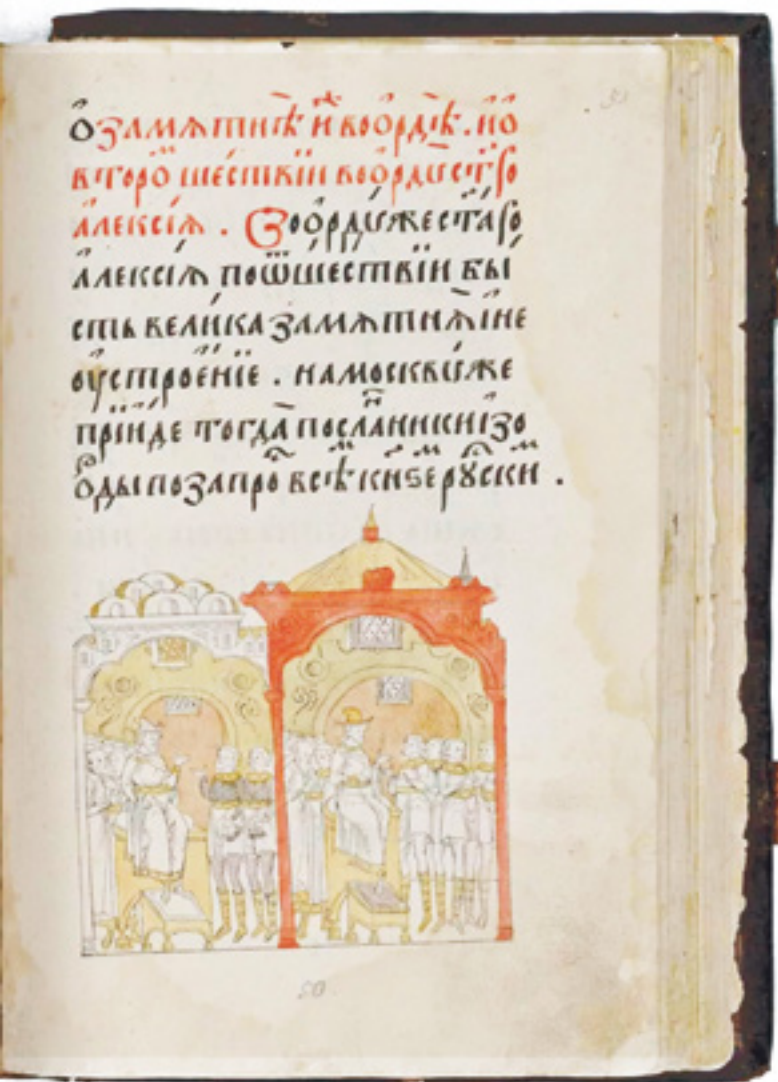 Ѻ҆ замѧтнѣ и҆ воѻ҆рдѣ . и҆ѻ҆
второ шествїи воѻ҆рдꙋ ст҃го
а҆леѯїѧ . Воо҆рдꙋже ста҃го
а҆леѯїѧ поѿшествїи бы
сть вели́ка замѧтнѧ҆ и҆не
оу҆строе́нїе . на москвꙋ́же
прїи́де тогда̀ посла́ники изо
о҆рды по запро всѣ кнѕе рꙋски .
50